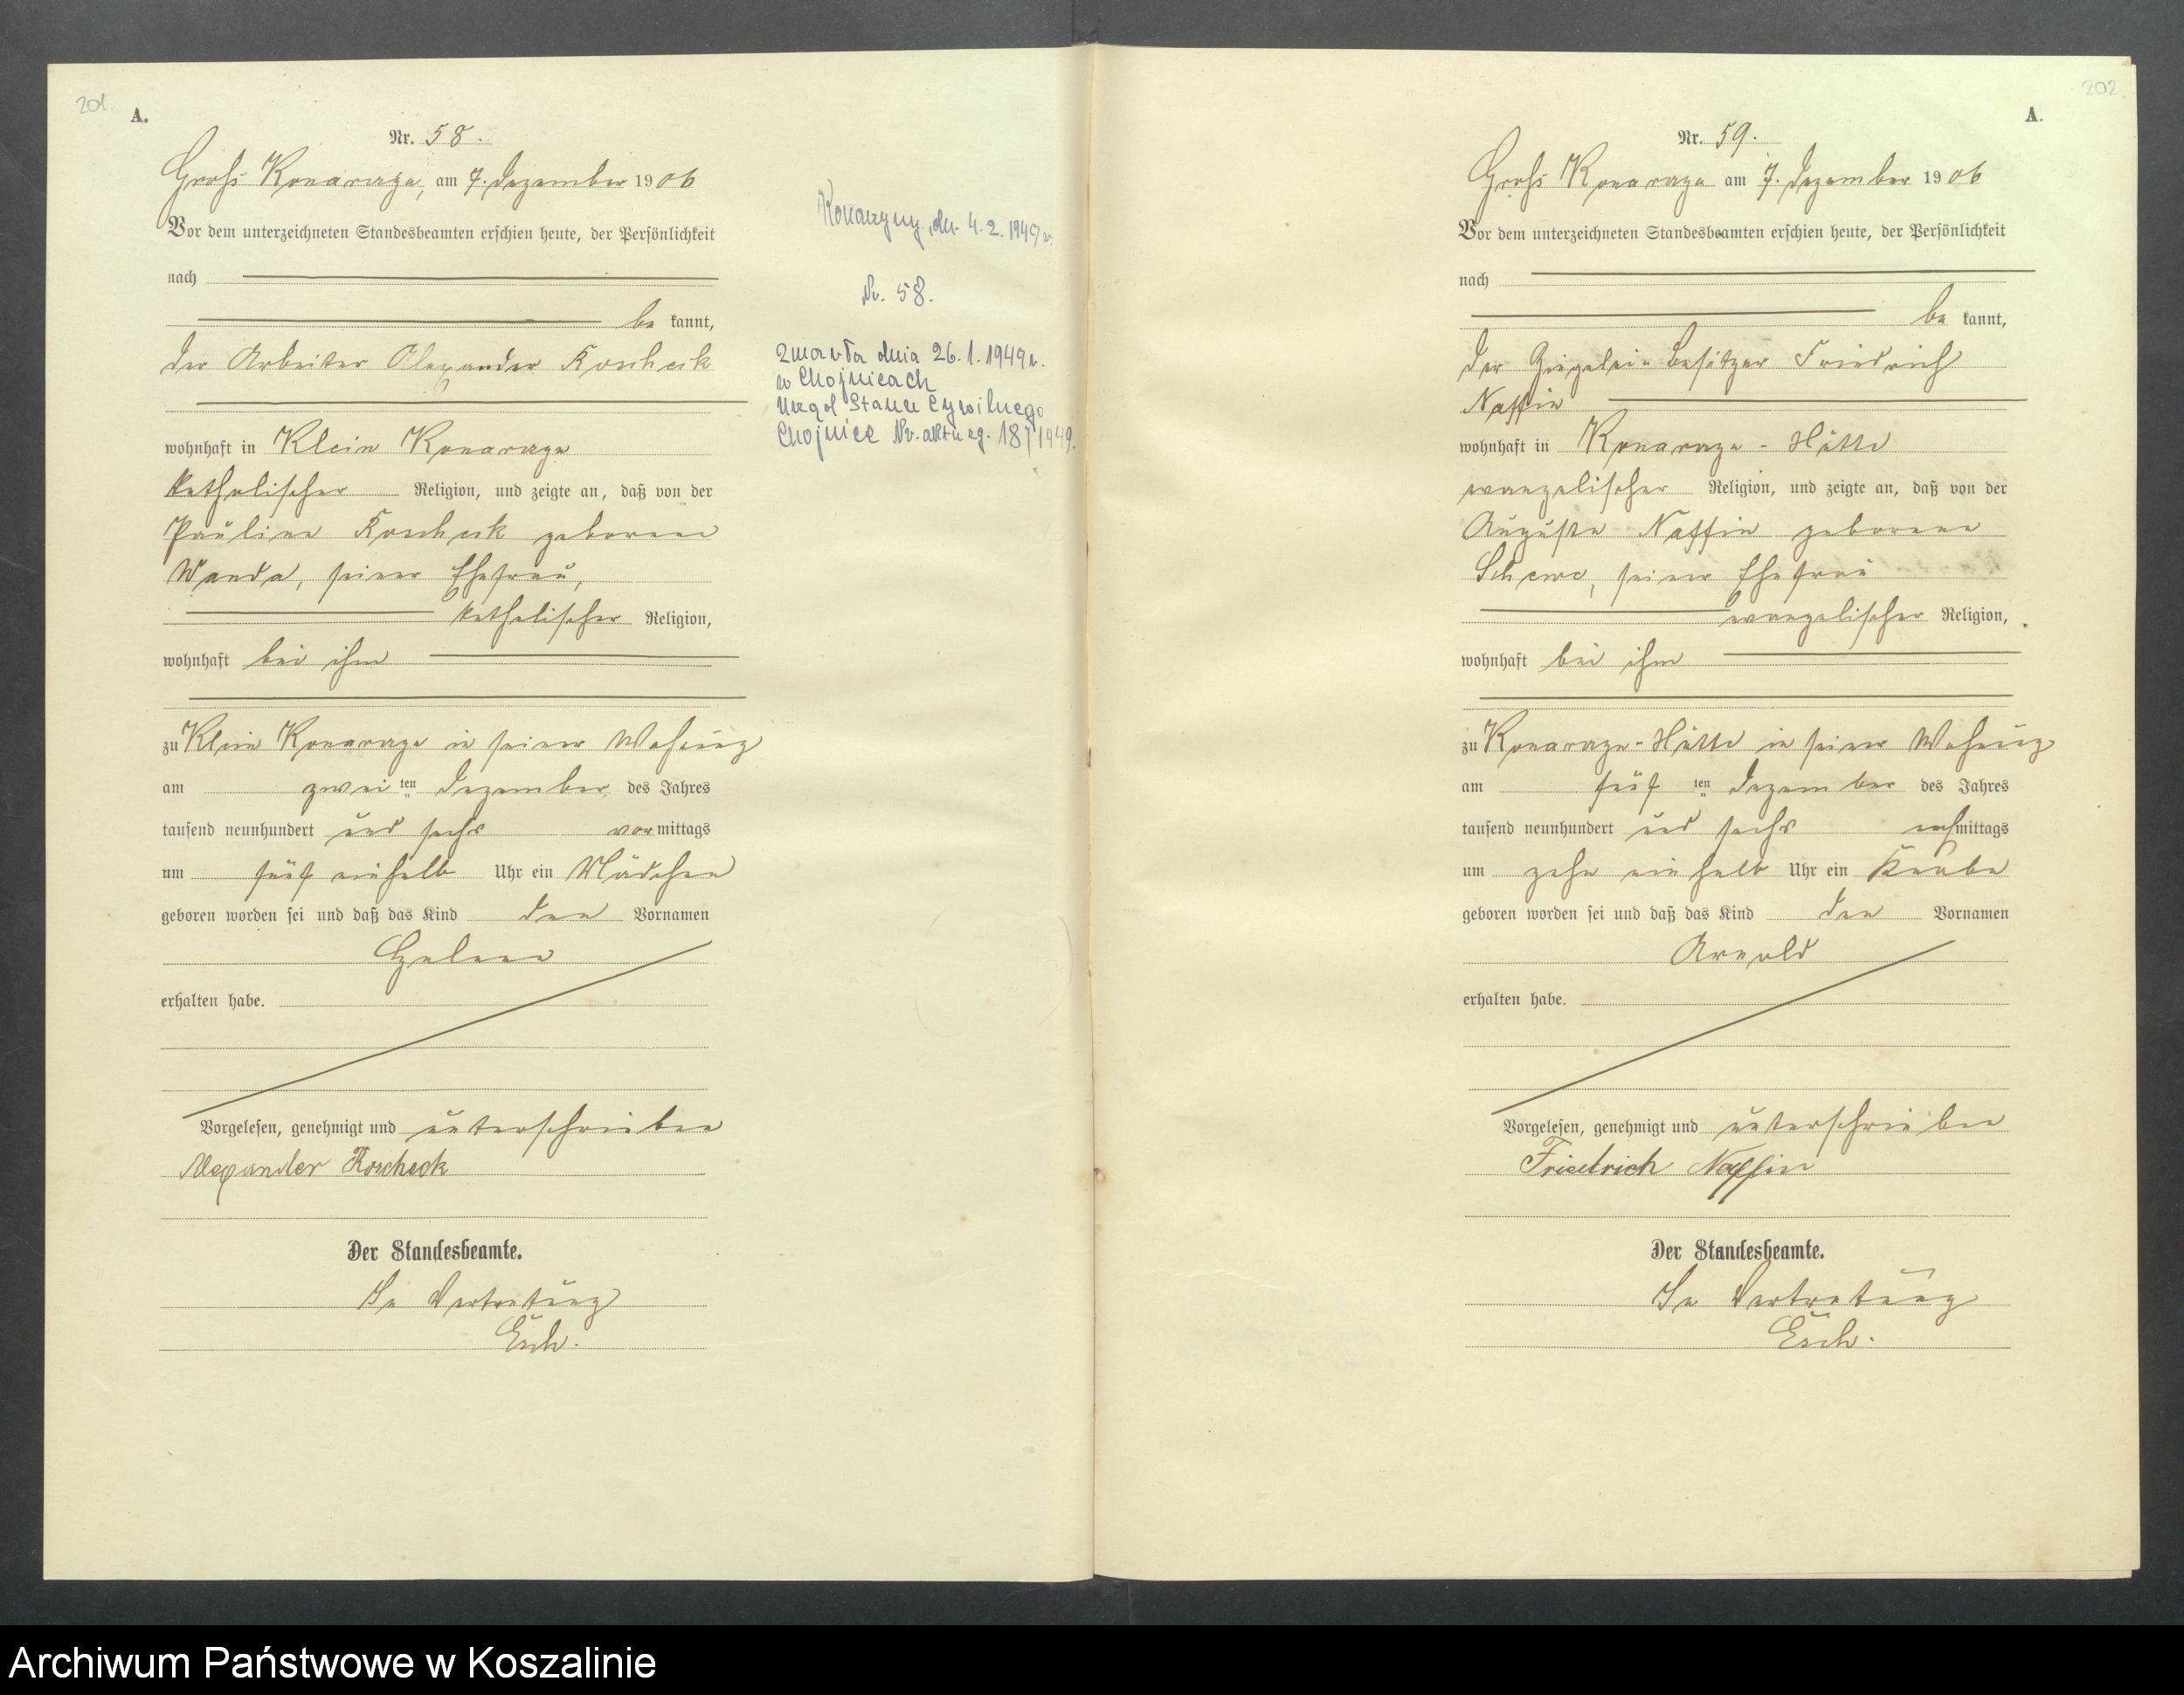 201.
A.
Nr. 58.
Groß Konarczyn, am 7. Dezember 1906
Vor dem unterzeichneten Standesbeamten erschien heute, der Persönlichkeit
nach
be kannt,
der Arbeiter Alexander Koscheck
wohnhaft in Klein Konarczyn
katholischer Religion, und zeigte an, daß von der
Pauline Koscheck geborene
Wanda, seiner Ehefrau,
katholischer Religion,
wohnhaft bei ihm
zu Klein Konarczyn in seiner Wohnung
am zwei ten Dezember des Jahres
tausend neunhundert und sechs vormittags
um fünf einhalb Uhr ein Mädchen
geboren worden sei und daß das Kind den Vornamen
Helene
erhalten habe.
Vorgelesen, genehmigt und unterschrieben
Alexander Koscheck
Der Standesbeamte.
In Vertretung
Esch.
Konarzyny, dn. 4. 2. 1949 r.
Nr. 58.
zmarła dnia 26. 1. 1949 r.
w Chojnicach
Urząd Stanu Cywilnego
Chojnice Nr. aktu zg. 18/1949.
202.
A.
Nr. 59.
Groß Konarczyn am 7. Dezember 1906
Vor dem unterzeichneten Standesbeamten erschien heute, der Persönlichkeit
nach
be kannt,
der Ziegelei-Besitzer Friedrich
Naffin
wohnhaft in Konarczyn-Hütte
evangelischer Religion, und zeigte an, daß von der
Auguste Naffin geborene
Schewe, seiner Ehefrau
evangelischer Religion,
wohnhaft bei ihm
zu Konarczyn-Hütte in seiner Wohnung
am fünf ten Dezember des Jahres
tausend neunhundert und sechs nachmittags
um zehn einhalb Uhr ein Knabe
geboren worden sei und daß das Kind den Vornamen
Arnold
erhalten habe.
Vorgelesen, genehmigt und unterschrieben
Friedrich Naffin
Der Standesbeamte.
In Vertretung
Esch.
Archiwum Państwowe w Koszalinie